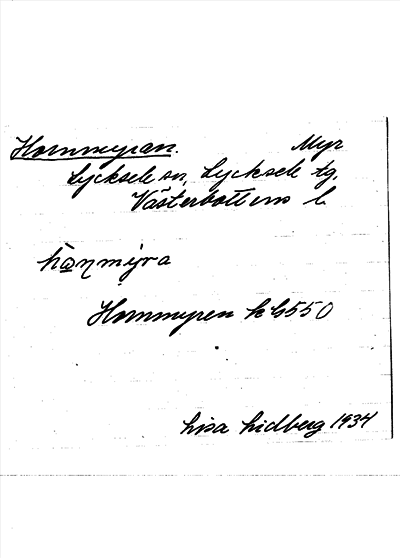 Hornmyran. Myr
Lycksele sn, Lycksele tg,
Västerbottens l.
hɷ̀ηmýra
Hornmyren k G550
Lisa Lidberg 1934